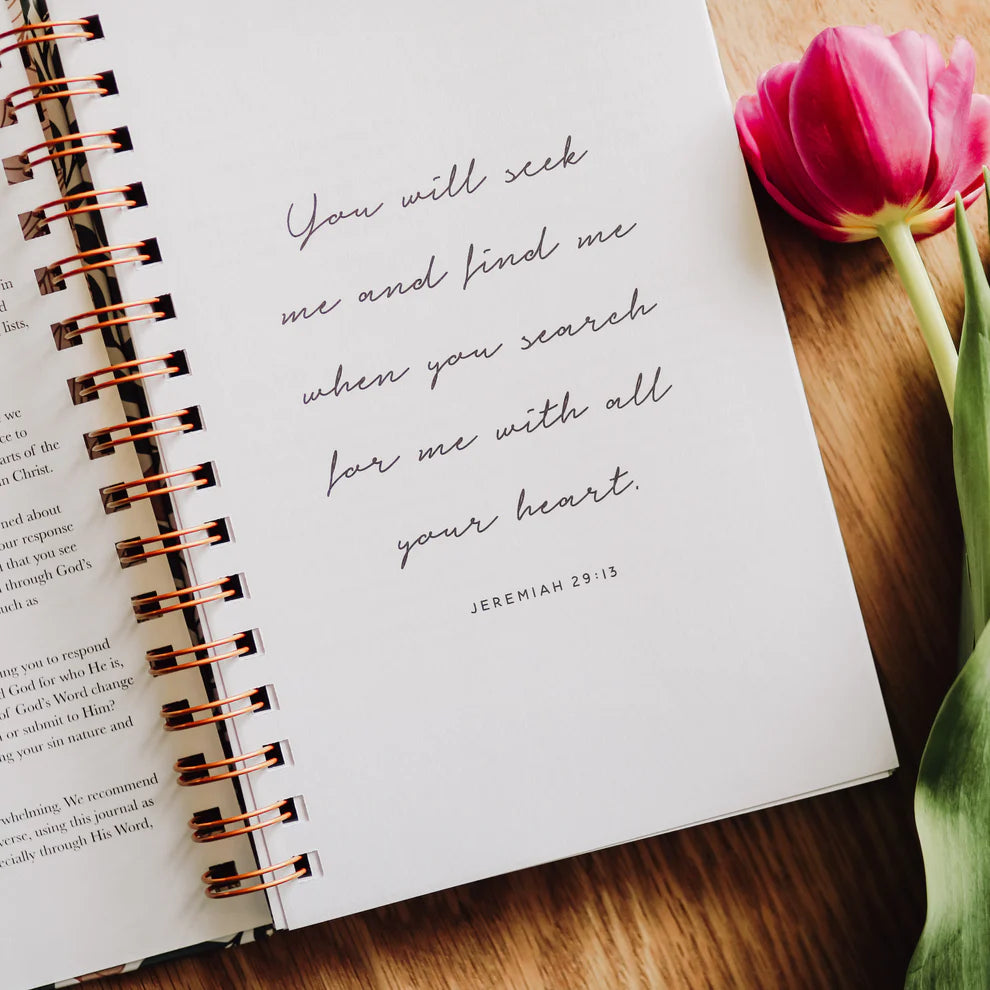 in
d
lists,
we
ce to
arts of the
n Christ.
ned about
our response
d that you see
through God's
uch as
ng you to respond
d God for who He is,
of God's Word change
or submit to Him?
ng your sin nature and
whelming. We recommend
verse, using this journal as
ecially through His Word,
You will seek
me and find me
when you search
for me with all
your heart.
JEREMIAH 29:13